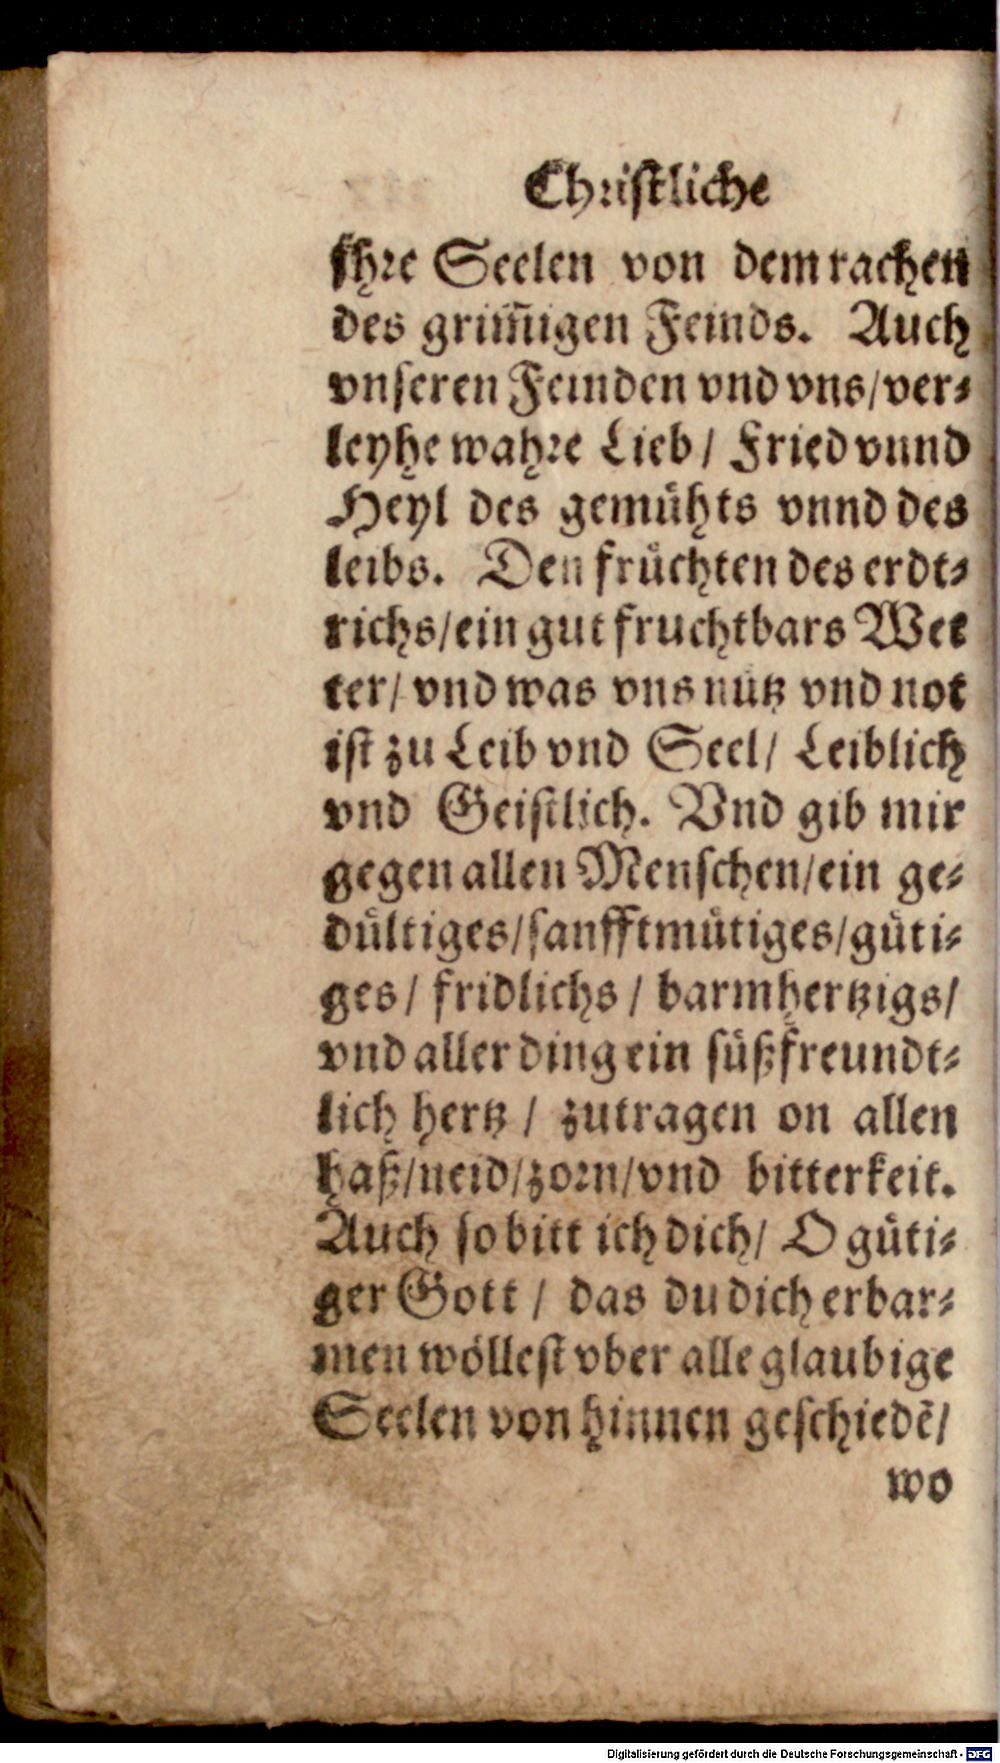 Christliche
jhre Seelen von dem rachen
des grim̃igen Feinds. Auch
vnseren Feinden vnd vns/ ver⸗
leyhe wahre Lieb/ Fried vnnd
Heyl des gemühts vnnd des
leibs. Den früchten des erdt⸗
richs/ ein gut fruchtbars Wet
ter/ vnd was vns nutz vnd not
ist zu Leib vnd Seel/ Leiblich
vnd Geistlich. Vnd gib mir
gegen allen Menschen/ ein ge⸗
dültiges/ sanfftmütiges/ güti⸗
ges/ fridlichs/ barmhertzigs/
vnd aller ding ein süß freundt⸗
lich hertz/ zutragen on allen
haß/ neid/ zorn/ vnd bitterkeit.
Auch so bitt ich dich/ O güti⸗
ger Gott/ das du dich erbar⸗
men wöllest vber alle glaubige
Seelen von hinnen geschiedẽ/
wo
Digitalisierung gefördert durch die Deutsche Forschungsgemeinschaft - DFG